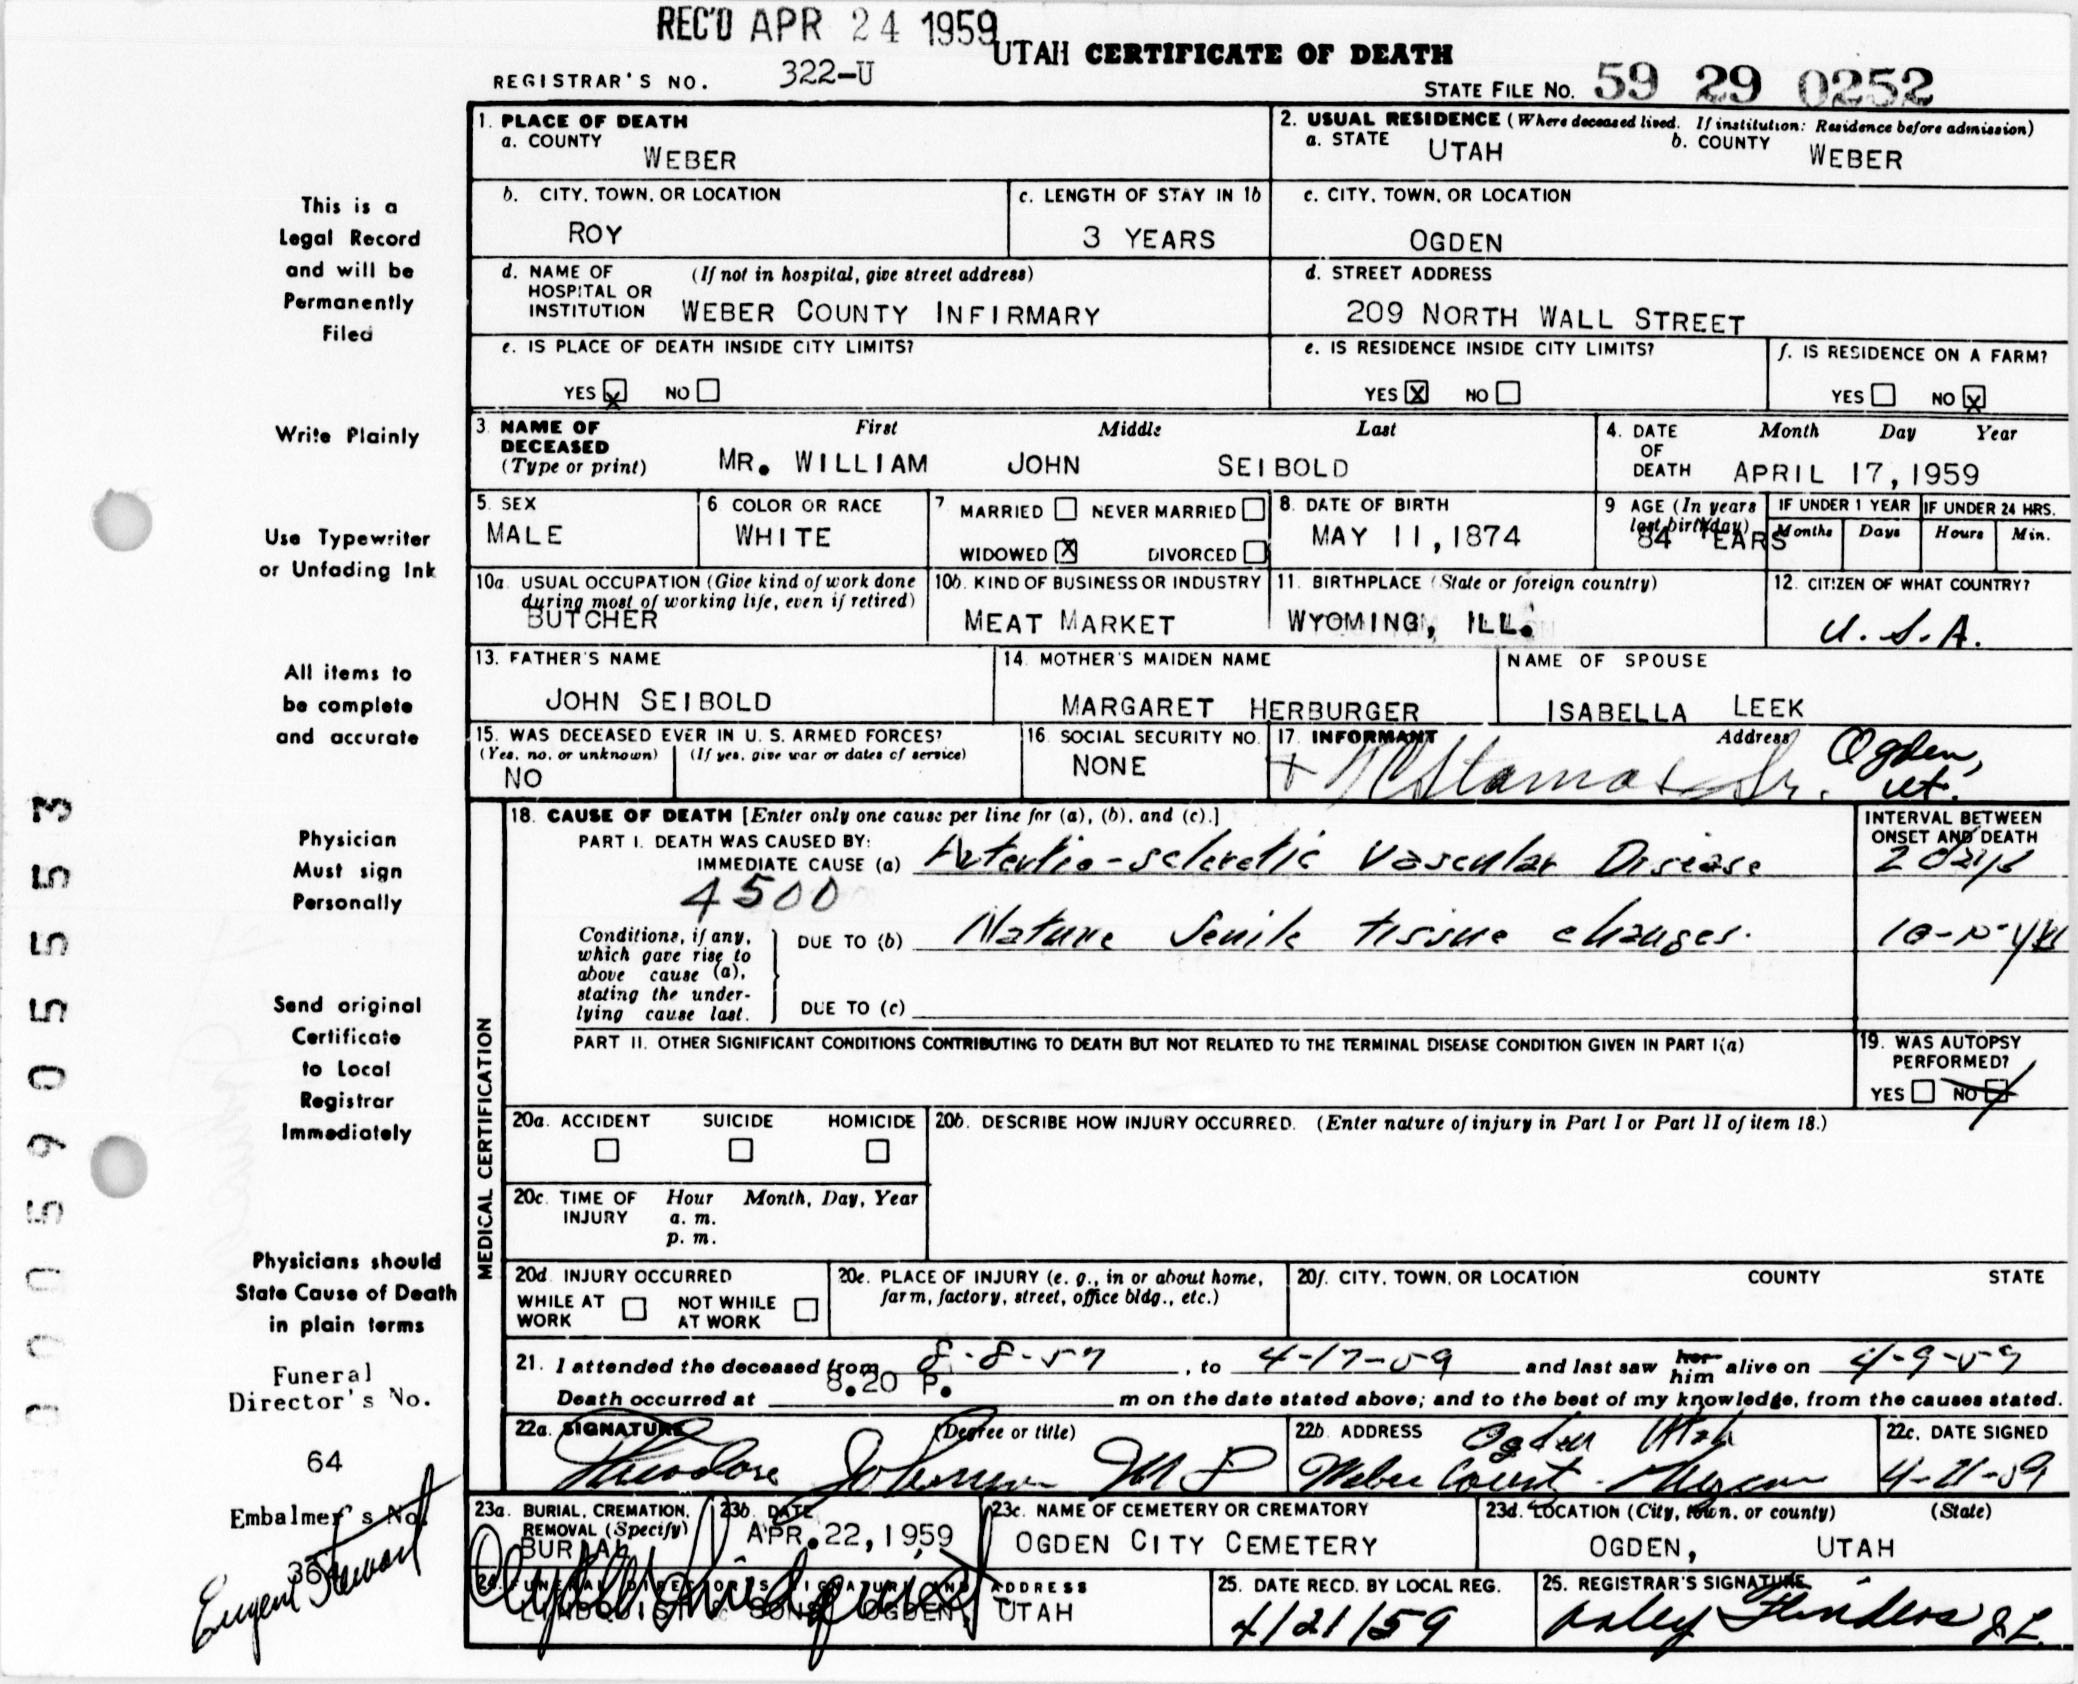 REC'D APR 24 1959
UTAH CERTIFICATE OF DEATH
REGISTRAR'S NO. 322-U
STATE FILE NO. 59 29 0252
1. PLACE OF DEATH
a. COUNTY WEBER
2. USUAL RESIDENCE (Where deceased lived. If institution: Residence before admission)
a. STATE UTAH b. COUNTY WEBER
b. CITY, TOWN, OR LOCATION ROY
c. LENGTH OF STAY IN 1b 3 YEARS
c. CITY, TOWN, OR LOCATION OGDEN
d. NAME OF HOSPITAL OR INSTITUTION (If not in hospital, give street address) WEBER COUNTY INFIRMARY
d. STREET ADDRESS 209 NORTH WALL STREET
e. IS PLACE OF DEATH INSIDE CITY LIMITS?
YES X NO
e. IS RESIDENCE INSIDE CITY LIMITS?
YES X NO
f. IS RESIDENCE ON A FARM?
YES NO X
3. NAME OF DECEASED (Type or print) First Middle Last
MR. WILLIAM JOHN SEIBOLD
4. DATE OF DEATH Month Day Year
APRIL 17, 1959
5. SEX MALE
6. COLOR OR RACE WHITE
7. MARRIED NEVER MARRIED
WIDOWED X DIVORCED
8. DATE OF BIRTH MAY 11, 1874
9. AGE (In years last birthday) 84 YEARS
IF UNDER 1 YEAR Months Days
IF UNDER 24 HRS. Hours Min.
10a. USUAL OCCUPATION (Give kind of work done during most of working life, even if retired)
BUTCHER
10b. KIND OF BUSINESS OR INDUSTRY
MEAT MARKET
11. BIRTHPLACE (State or foreign country)
WYOMING, ILL.
12. CITIZEN OF WHAT COUNTRY?
U.S.A.
13. FATHER'S NAME
JOHN SEIBOLD
14. MOTHER'S MAIDEN NAME
MARGARET HERBURGER
NAME OF SPOUSE
ISABELLA LEEK
15. WAS DECEASED EVER IN U. S. ARMED FORCES?
(Yes, no, or unknown) (If yes, give war or dates of service)
NO
16. SOCIAL SECURITY NO.
NONE
17. INFORMANT Address
Ogden, Ut.
MEDICAL CERTIFICATION
18. CAUSE OF DEATH [Enter only one cause per line for (a), (b), and (c).]
PART I. DEATH WAS CAUSED BY:
IMMEDIATE CAUSE (a) Arterio-sclerotic Vascular Disease
4500
INTERVAL BETWEEN ONSET AND DEATH
2 days
Conditions, if any, which gave rise to above cause (a), stating the underlying cause last.
DUE TO (b) Nature Senile tissue changes.
DUE TO (c)
PART II. OTHER SIGNIFICANT CONDITIONS CONTRIBUTING TO DEATH BUT NOT RELATED TO THE TERMINAL DISEASE CONDITION GIVEN IN PART I(a)
19. WAS AUTOPSY PERFORMED?
YES NO
20a. ACCIDENT SUICIDE HOMICIDE
20b. DESCRIBE HOW INJURY OCCURRED. (Enter nature of injury in Part I or Part II of item 18.)
20c. TIME OF INJURY Hour Month, Day, Year
a. m.
p. m.
20d. INJURY OCCURRED
WHILE AT WORK NOT WHILE AT WORK
20e. PLACE OF INJURY (e. g., in or about home, farm, factory, street, office bldg., etc.)
20f. CITY, TOWN, OR LOCATION COUNTY STATE
21. I attended the deceased from 8-8-57, to 4-17-59 and last saw her him alive on 4-9-59
Death occurred at 8.20 P. m on the date stated above; and to the best of my knowledge, from the causes stated.
22a. SIGNATURE (Degree or title)
Theodore Johnson M D
22b. ADDRESS
Ogden Utah
22c. DATE SIGNED
4-21-59
23a. BURIAL, CREMATION, REMOVAL (Specify)
BURIAL
23b. DATE
APR. 22, 1959
23c. NAME OF CEMETERY OR CREMATORY
OGDEN CITY CEMETERY
23d. LOCATION (City, town, or county) (State)
OGDEN, UTAH
24. FUNERAL DIRECTOR'S SIGNATURE AND ADDRESS
LINDQUIST & SONS OGDEN, UTAH
25. DATE RECD. BY LOCAL REG.
4/21/59
25. REGISTRAR'S SIGNATURE
Flinders
This is a
Legal Record
and will be
Permanently
Filed
Write Plainly
Use Typewriter
or Unfading Ink
All items to
be complete
and accurate
Physician
Must sign
Personally
Send original
Certificate
to Local
Registrar
Immediately
Physicians should
State Cause of Death
in plain terms
Funeral
Director's No.
64
Embalmer's No.
Eugene Stewart